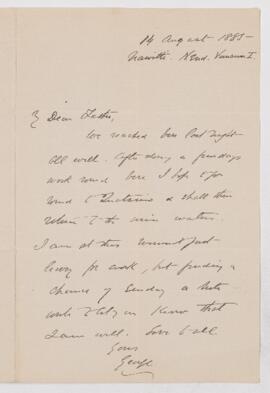 14 August 1885
Nawitti. N End. Vancouver I.
My Dear Father,
We reached here last night
all well. After doing a few days
work round here I hope to go
round to Quatsino & shall then
return to the main waters.
I am at this moment just
leaving for work, but finding a
chance of sending a note
write to let you know that
I am well. Love to all
Yours
George